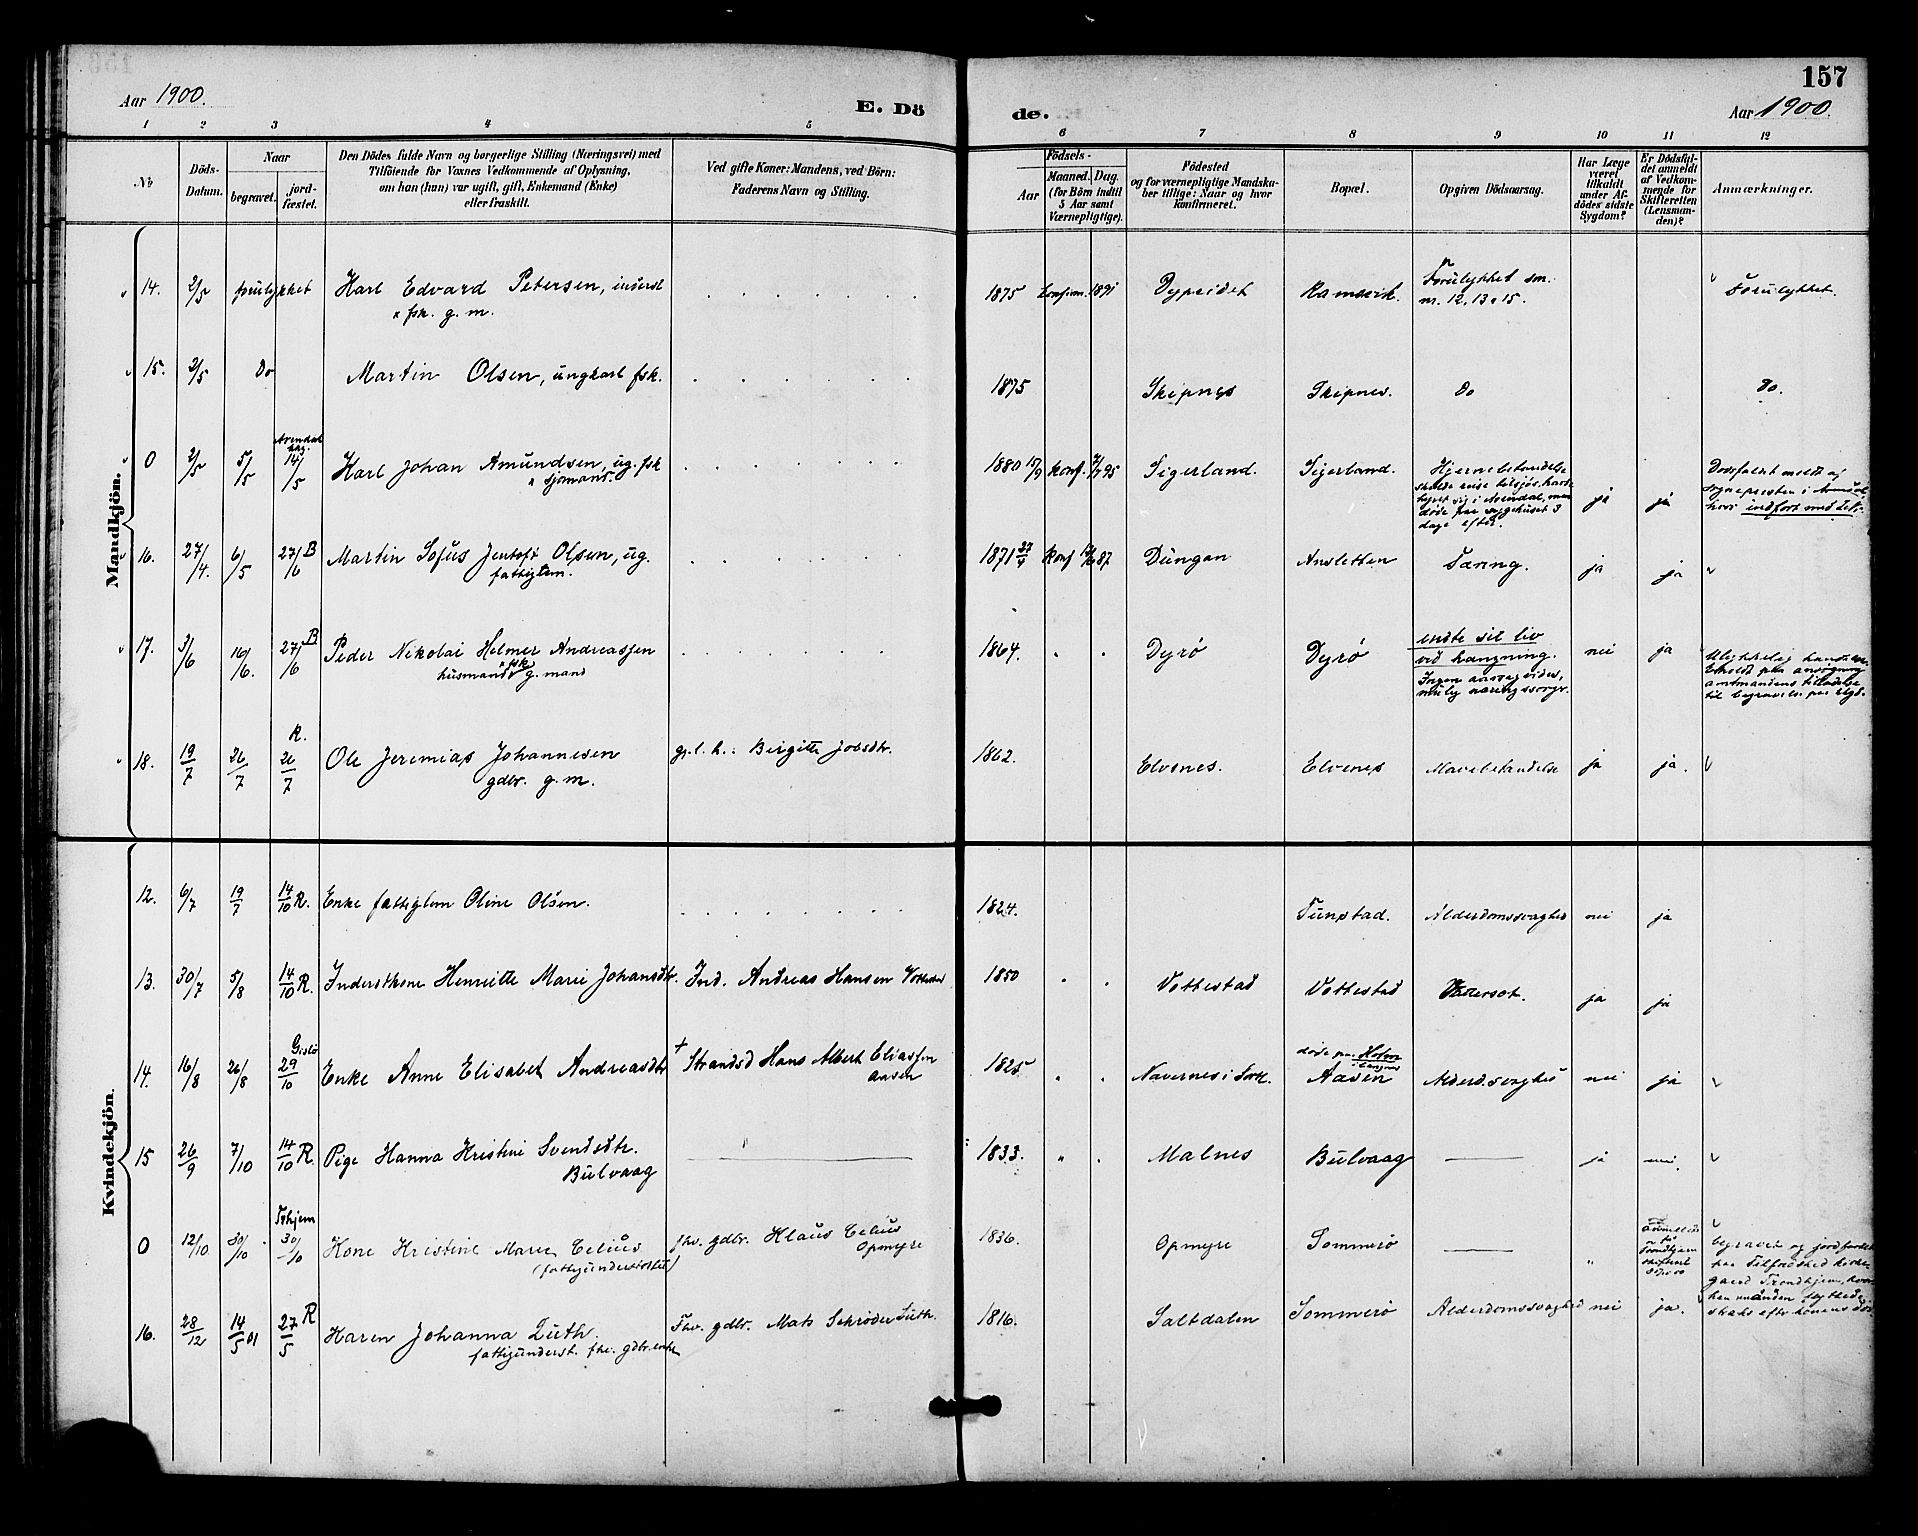 157
Aar 1900. E. Dö de. Aar 1900.
1 2 3 4 5 6 7 8 9 10 11 12
No
Döds-Datum.
Naar
begravet.
jord-fæstet.
Den Dödes fulde Navn og borgerlige Stilling (Næringsvei) med
Tilföiende for Voxnes Vedkommende af Oplysning,
om han (hun) var ugift, gift, Enkemand (Enke)
eller fraskilt.
Ved gifte Koner: Mandens, ved Börn:
Faderens Navn og Stilling.
Födsels-
Aar
Maaned. Dag.
(for Börn indtil
5 Aar samt
Værnepligtige).
Födested
og for værnepligtige Mandska-
ber tillige: Naar og hvor
konfirmeret.
Bopæl.
Opgiven Dödsaarsag.
Har Læge
været
tilkaldt
under Af-
dödes sidste
Sygdom?
Er Dödsfal-
det anmeldt
af Vedkom-
mende for
Skifteretten
(Lensman-
den)?
Anmærkninger.
Mandkjön.
14. 2/5 forulykket Karl Edvard Petersen, inderst 1875 konfirm. 1891 Dypeidet Ramsvik. Forulykket sm. Forulykket.
fsk. g. m. nr. 12, 13 15.
15. 2/5 Do Martin Olsen, ungkarl fsk. 1875 Skipnes Skipnes. do do.
0 2/5 5/5 Arendal 14/5 Karl Johan Amundsen, ug. fsk 1880 15/9 konf. 95 Sigerland. Sigerland. Hjernebetændelse ja ja
sjømand. skulde reise tilsjøs, havde
syget sig i Arendal, men
døde paa sygehuset 3
dage efter.
Dødsfaldet meldt af
Sognepresten i Arendal
hvor indført med Lit.
16. 27/4. 6/5 27/6 B Martin Sofus Jentoft Olsen, ug. 1871 27/4 konf 87 Dungan Ansletten Tæring. ja ja
fattiglem.
17. 3/6 16/6. 27/6 B Peder Nikolai Helmer Andreassen 1864. Dyrø Dyrø endte sit liv nei ja
husmand fsk g. mand ved hængning.
Ingen aarsag vides,
mulig næringssorgr.
Ulykkelig
Erholdt paa ansøgning
amtmandens tilladelse
til begravelse paa
18. 19/7 26/7 R. 26/7 Ole Jeremias Johannesen gj. l. h.: Birgitte Jobsdtr. 1862. Elvenes. Elvenes Mavebetændelse ja ja.
gdbr. g. m.
Kvindekjön.
12. 6/7 19/7 14/10 R. Enke fattiglem Oline Olsen. 1824. Tunstad. Alderdomssvaghed nei ja
13. 30/7 5/8 14/10 R. Inderstkone Henriette Marie Johansdtr. Ind. Andreas Hansen Vottestad 1850 Vottestad Vottestad Vattersot. ja ja
14. 16/8 26/8 Gislø 29/10 Enke Anne Elisabet Andreasdtr + Strandsd Hans Albert Eliassen 1825 Navernes i Sortl. døde paa Holm Aasen Alderd.svaghed nei ja
Aasen
15 26/9 7/10 14/10 R. Pige Hanna Kristine Svendsdtr. 1833. Malnes Bulvaag ja nei.
Bulvaag
0 12/10 30/10 Trhjem 30/10 Kone Kristine Marie Celius fhv. gdbr. Klaus Celius 1836. Opmyre Sommerø
(fattigunderstøttet) Opmyre
begravet og jordfæstet
paa Tilfredshed kirke-
gaard Trondhjem, hvor-
hen manden flyttede
straks efter konens død
16. 28/12 14/5 01 27/5 R Karen Johanna Luth. Fhv. gdbr. Mats Schrøder Luth. 1816. Saltdalen Sommerø Alderdomssvaghed nei ja.
fattigunderst. fhv. gdbr. enke